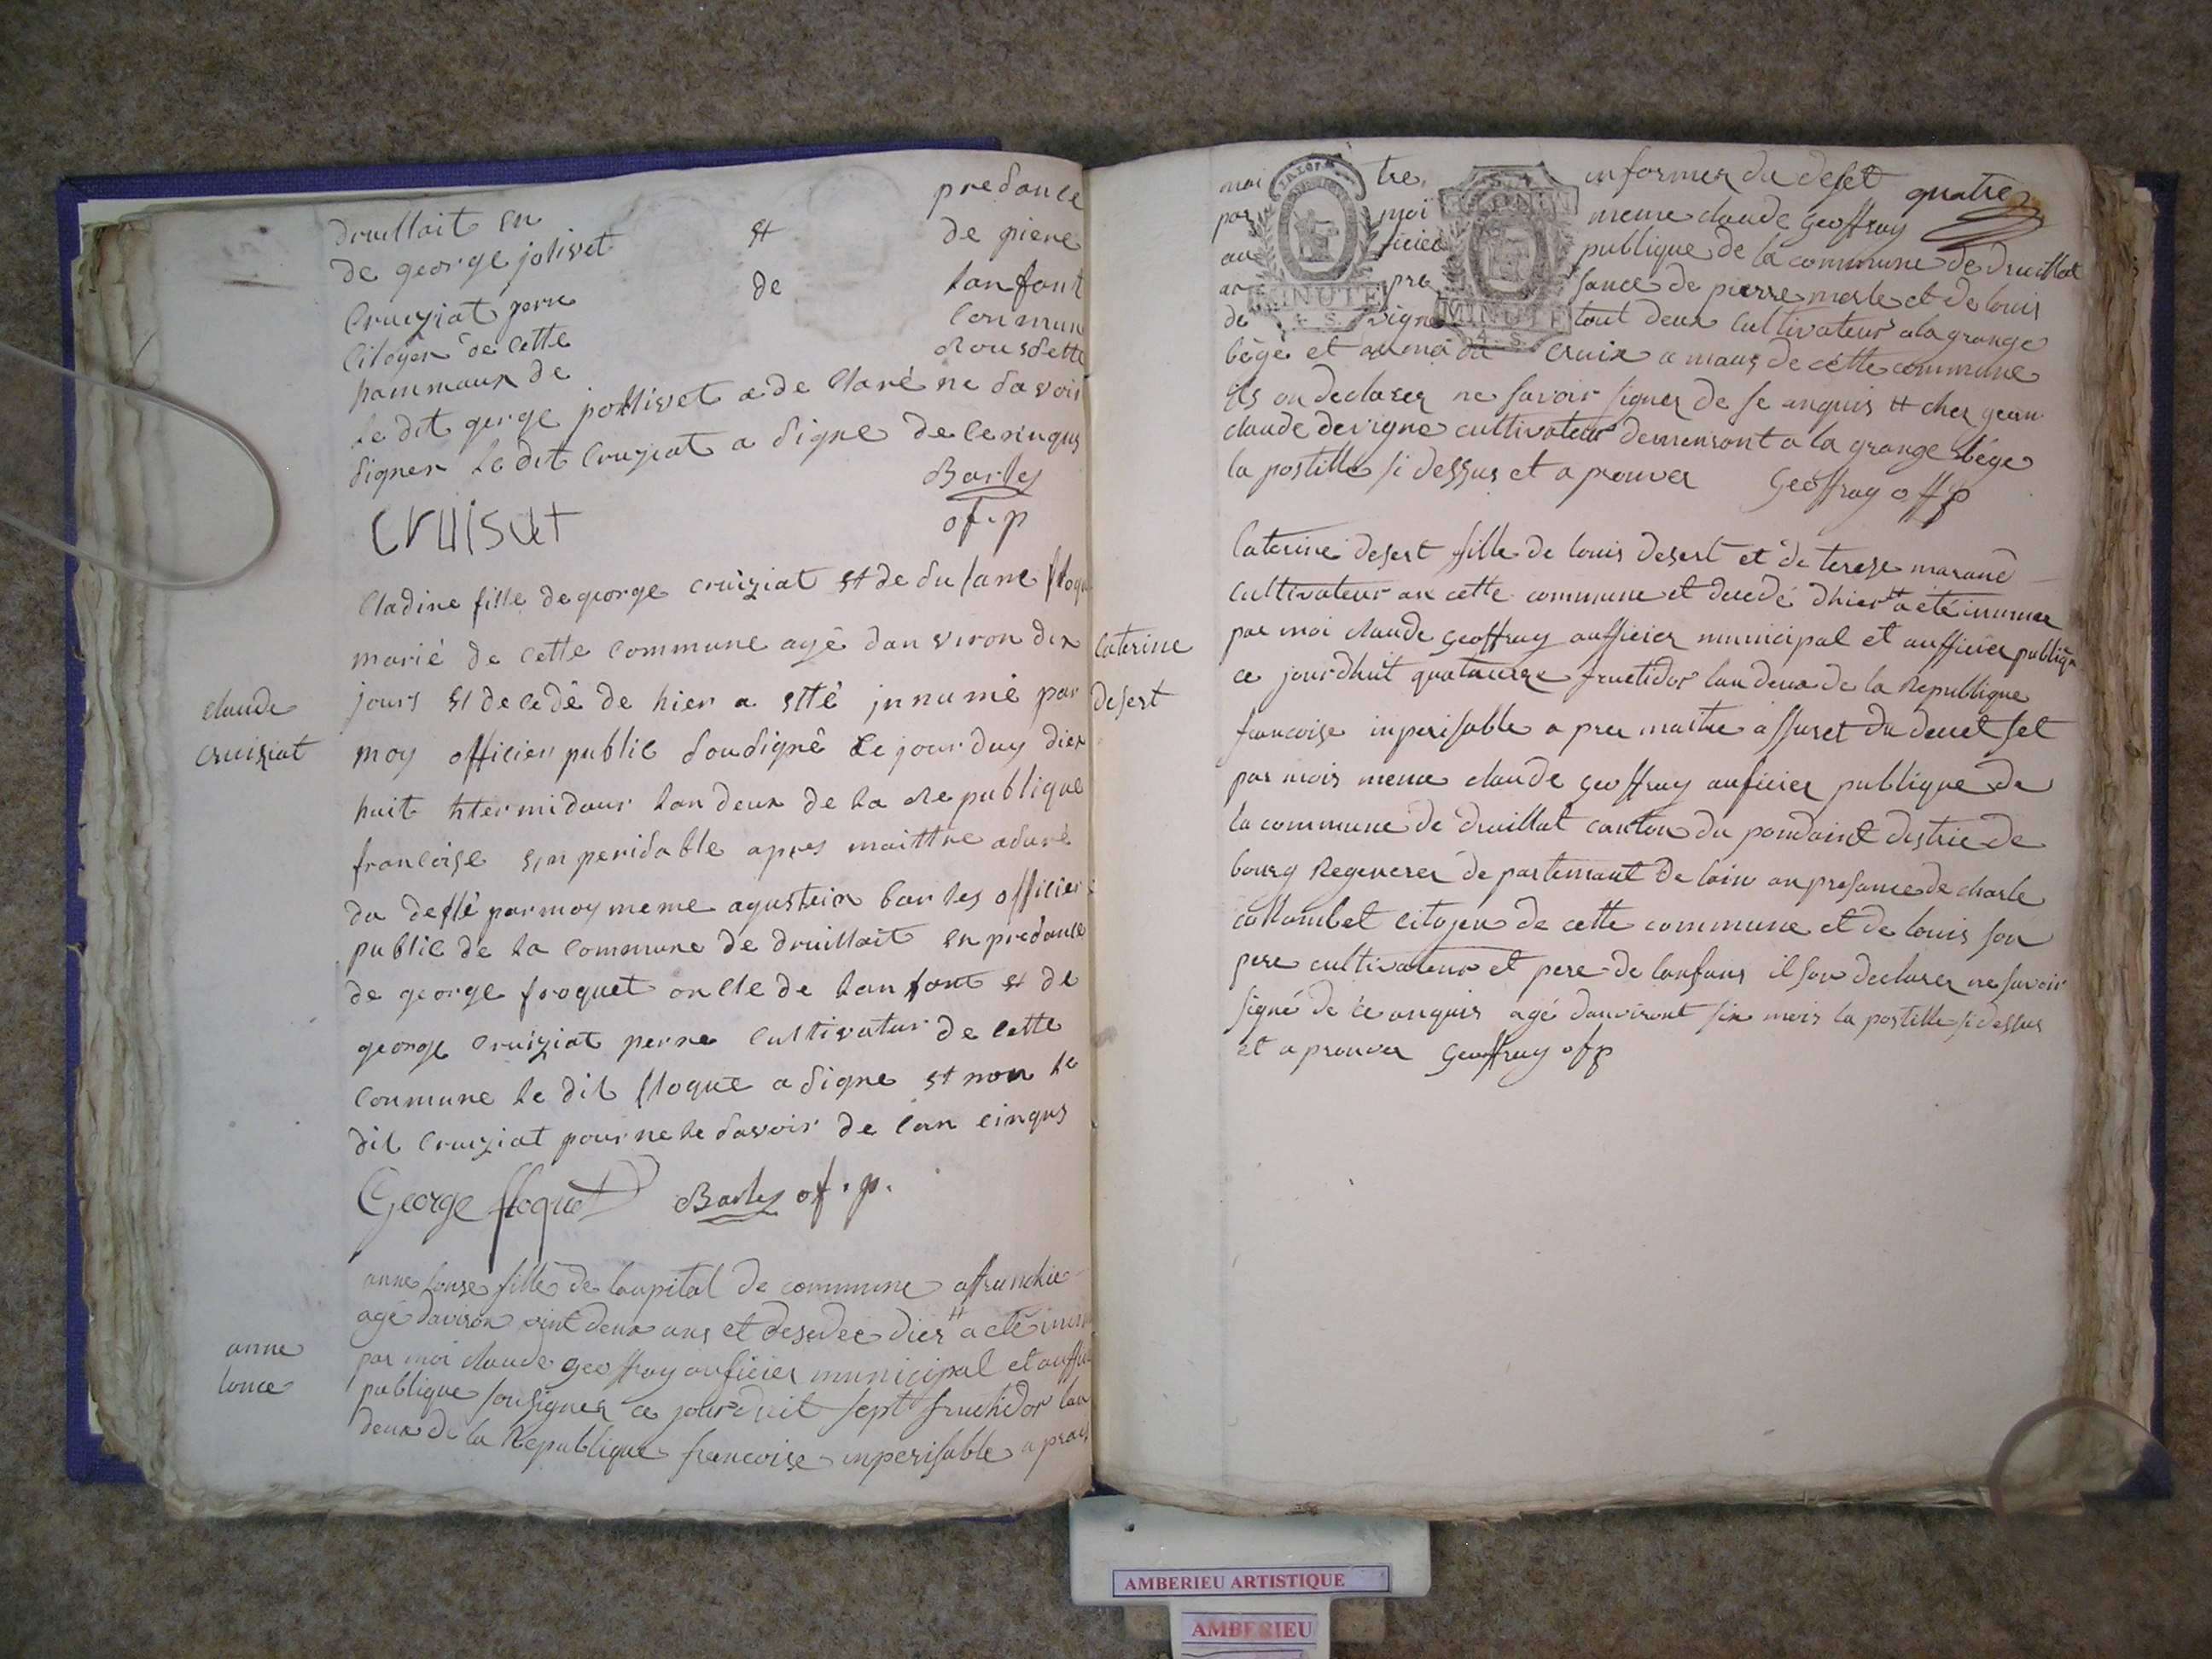 druillait en predance
de george jolivet et de piere
Cruiziat perre de lanfant
Citoyen de cette Commune
hammaux de Rousdette
le dit gerge jollivet a de Claré ne davoir
digner le dit Cruziat a digne de ce rinqus
Barles
cruisiat of. p
Cladine fille de george cruiziat et de susane floque
marié de cette Commune agé danviron dix
jours et decedé de hier a etté innumé par
claude
cruiziat
moy officier public soudigné ce jourduy diex
huit htermidour lan deux de la Republique
francoise ynperidable apres maittre aduré
du deslé par moy meme agustein barles officier
public de la Commune de druillait en predance
de george froquet oncle de lanfant et de
george Cruiziat perre Cultivatur de cette
Commune le dit floque a digne et non le
dit Cruiziat pour ne le davoir de lan einqus
George floquet Barles of. p.
anne lonse fille de laupital de commune affranchie
agé daviron vint deux ans et desedee dier # a eté inum
anne
lonce
par moi claude geoffray auficier municipal et auffi
publique sousigner ce jourduit sept fructidor lan
deux de la Republique francoise inperisable a prai
moi tre informer du deset quatre
par moi meme claude Geoffray
au ficier publique de la commune de druillat
an pre sance de pierre merle et de louis
de vigne tout deux cultivateur a la grange
bége et au ma du Cruix a maux de cette commune
ils on declarer ne savoir signer de se anquis # cher gean
claude devigne cultivateur demeuront a la grange bége
la postille si dessus et a prouver Geoffray off p
MINUTE
4. S.
MINUTE
4. S.
Caterine
desert
Caterine desert fille de louis desert et de tereze marand
Cultivateur an cette commune et decedé dhier # a eté inumer
par moi claude Geoffray aufficier municipal et aufficier publiq
ce jourdhuit quatuerze fructidor lan deux de la Republique
francoise inperisable a pres maitre assuret du decet set
par mois meme claude geoffray auficier publique de
la commune de druillat canton du pondaint distric de
bourg Regenerer departemant de lain an presance de charle
collombet citoyen de cette commune et de louis son
pere cultivateur et pere de lanfans il son declarer ne savoir
signé de ce anquis agé danviront six mois la postille si dessus
et a prouver Geoffray of p
AMBERIEU ARTISTIQUE
AMBERIEU